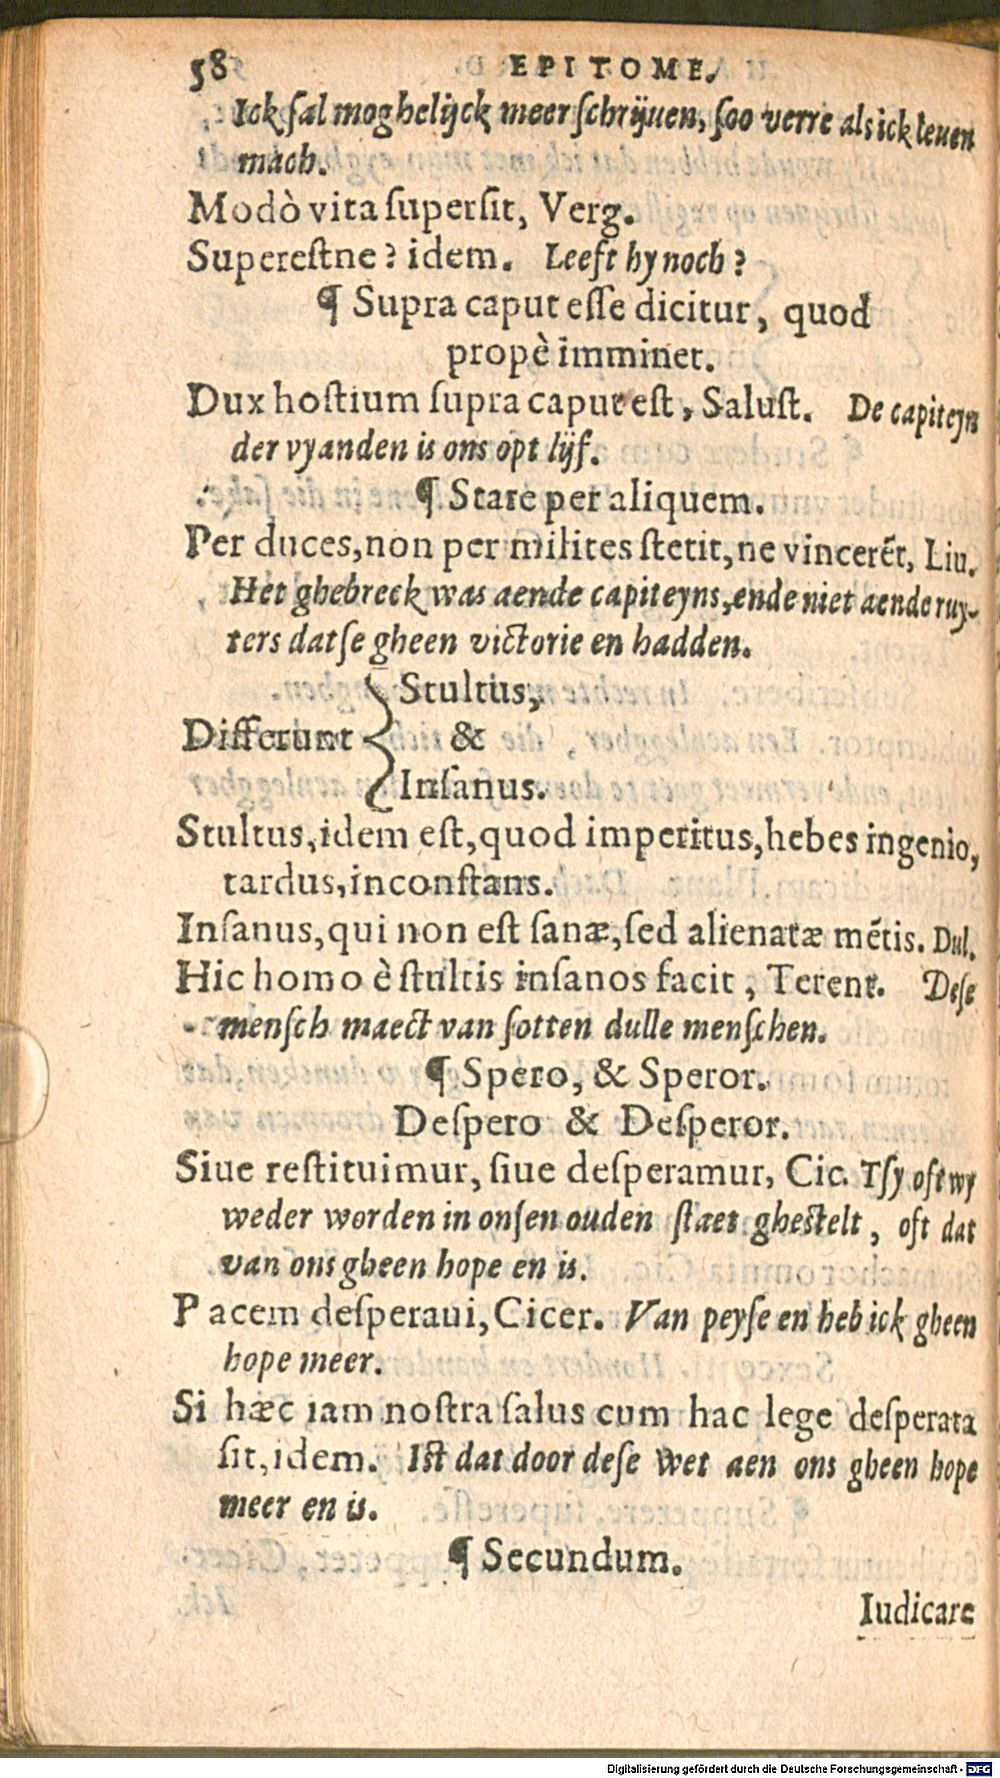 58 EPITOME.
Ick ſal moghelijck meer ſchrijuen, ſoo verre als ick leuen
mach.
Modò vita ſuperſit, Verg.
Supereſtne? idem. Leeft hy noch?
¶ Supra caput eſſe dicitur, quod
propè imminet.
Dux hoſtium ſupra caput eſt, Saluſt. De capiteyn
der vyanden is ons opt lijf.
¶ Stare per aliquem.
Per duces, non per milites ſtetit, ne vincerēt, Liu.
Het ghebreck was aende capiteyns, ende niet aende ruy-
ters datſe gheen victorie en hadden.
Stultus,
Differunt &
Inſanus.
Stultus, idem eſt, quod imperitus, hebes ingenio,
tardus, inconſtans.
Inſanus, qui non eſt ſanæ, ſed alienatæ mētis. Dul.
Hic homo è ſtultis inſanos facit, Terent. Deſe
menſch maect van ſotten dulle menſchen.
¶ Spero, & Speror.
Deſpero & Deſperor.
Siue reſtituimur, ſiue deſperamur, Cic. Tſy oft wy
weder worden in onſen ouden ſtaet gheſtelt, oft dat
van ons gheen hope en is.
Pacem deſperaui, Cicer. Van peyſe en heb ick gheen
hope meer.
Si hæc iam noſtra ſalus cum hac lege deſperata
ſit, idem. Iſt dat door deſe Wet aen ons gheen hope
meer en is.
¶ Secundum.
Iudicare
Digitalisierung gefördert durch die Deutsche Forschungsgemeinschaft - DFG